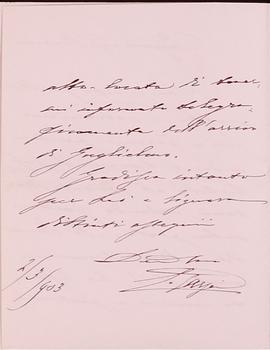 di tener
mi informato telegra
ficamente dell'arrivo
di Guglielmo.
Gradisca intanto
per Lei e Signora
distinti ossequii
2/3/903